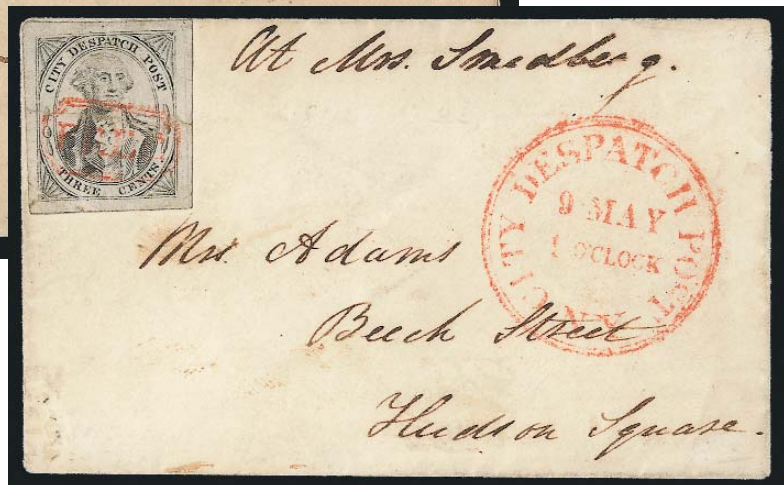 CITY DESPATCH POST
THREE CENTS
At Mrs. Smedberg.
CITY DESPATCH POST
9 MAY
1 O'CLOCK
N.Y.
Mrs. Adams
Beech Street
Hudson Square.